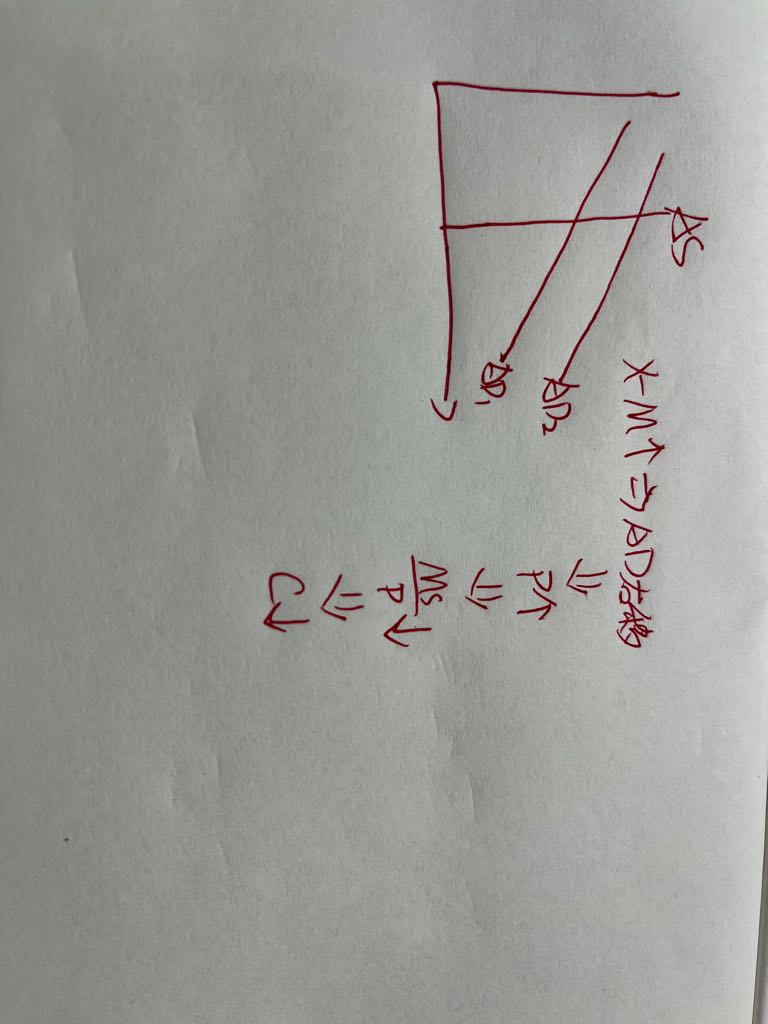 AS
AD₁
AD₂
X-M↑⇒AD右移
⇓
P↑
⇓
Ms
P
↓
⇓
C↓